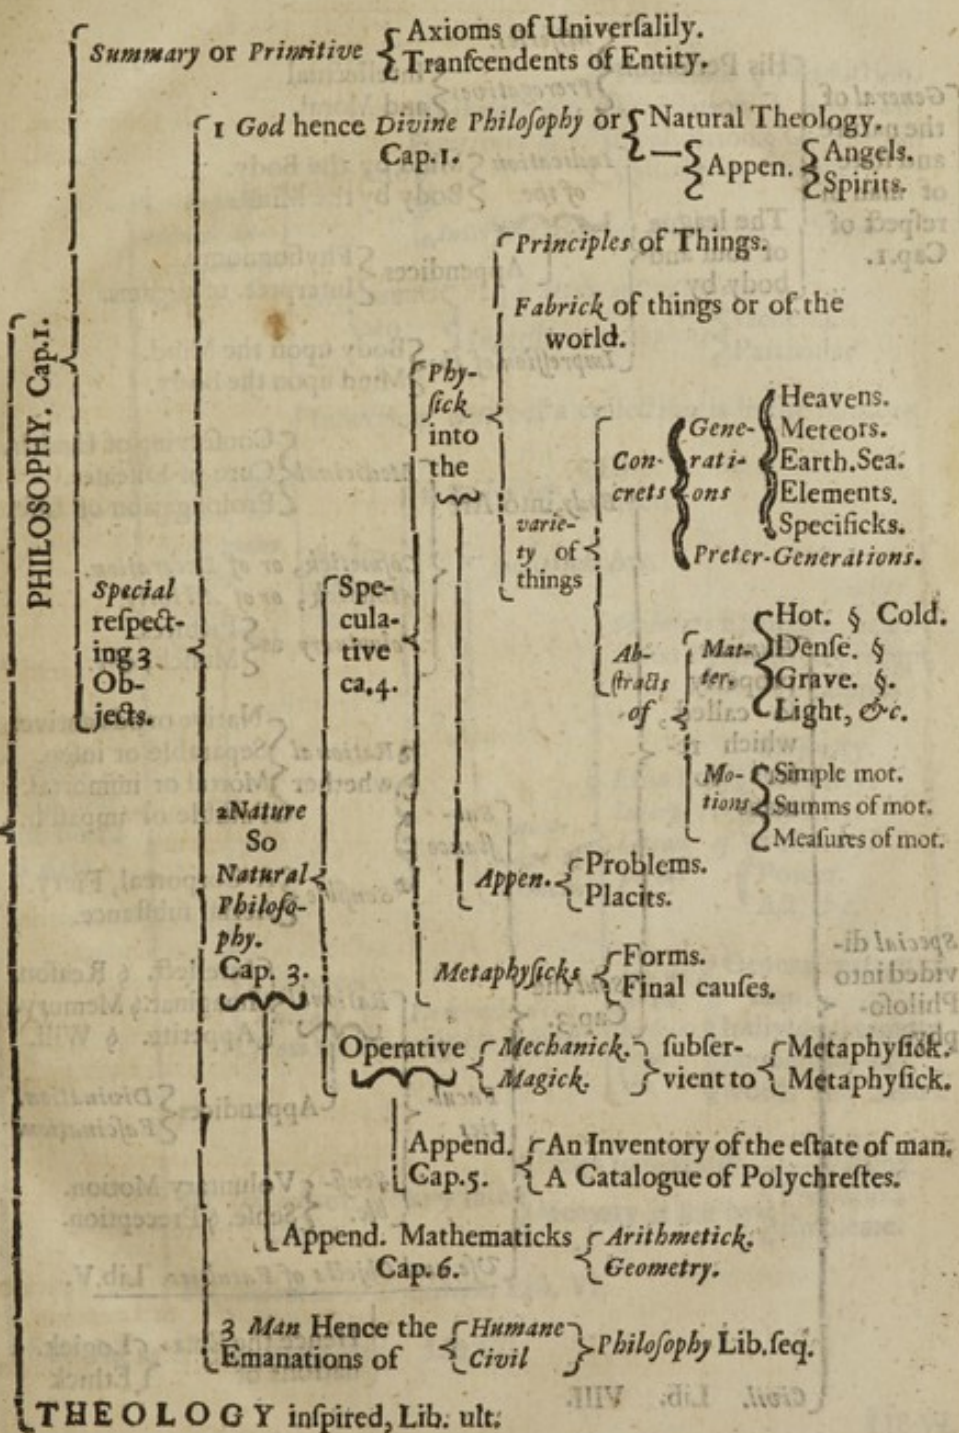 PHILOSOPHY. Cap.1.
Summary or Primitive
Axioms of Univerſalily.
Tranſcendents of Entity.
Special
reſpect-
ing 3
Ob-
jects.
1 God hence Divine Philoſophy or
Cap.1.
Natural Theology.
Appen.
Angels.
Spirits.
2Nature
So
Natural
Philoſo-
phy.
Cap. 3.
Spe-
cula-
tive
ca.4.
Phy-
ſick
into
the
Principles of Things.
Fabrick of things or of the
world.
varie-
ty of
things
Con-
crets
Gene-
rati-
ons
Heavens.
Meteors.
Earth.Sea.
Elements.
Specificks.
Preter-Generations.
Ab-
ſtracts
of
Mat-
ter.
Hot. § Cold.
Denſe. §
Grave. §.
Light, &c.
Mo-
tions
Simple mot.
Summs of mot.
Meaſures of mot.
Appen.
Problems.
Placits.
Metaphyſicks
Forms.
Final cauſes.
Operative
Mechanick.
Magick.
ſubſer-
vient to
Metaphyſick.
Metaphyſick.
Append.
Cap.5.
An Inventory of the eſtate of man.
A Catalogue of Polychreſtes.
Append. Mathematicks
Cap.6.
Arithmetick.
Geometry.
3 Man Hence the
Emanations of
Humane
Civil
Philoſophy Lib.ſeq.
THEOLOGY inſpired, Lib. ult.